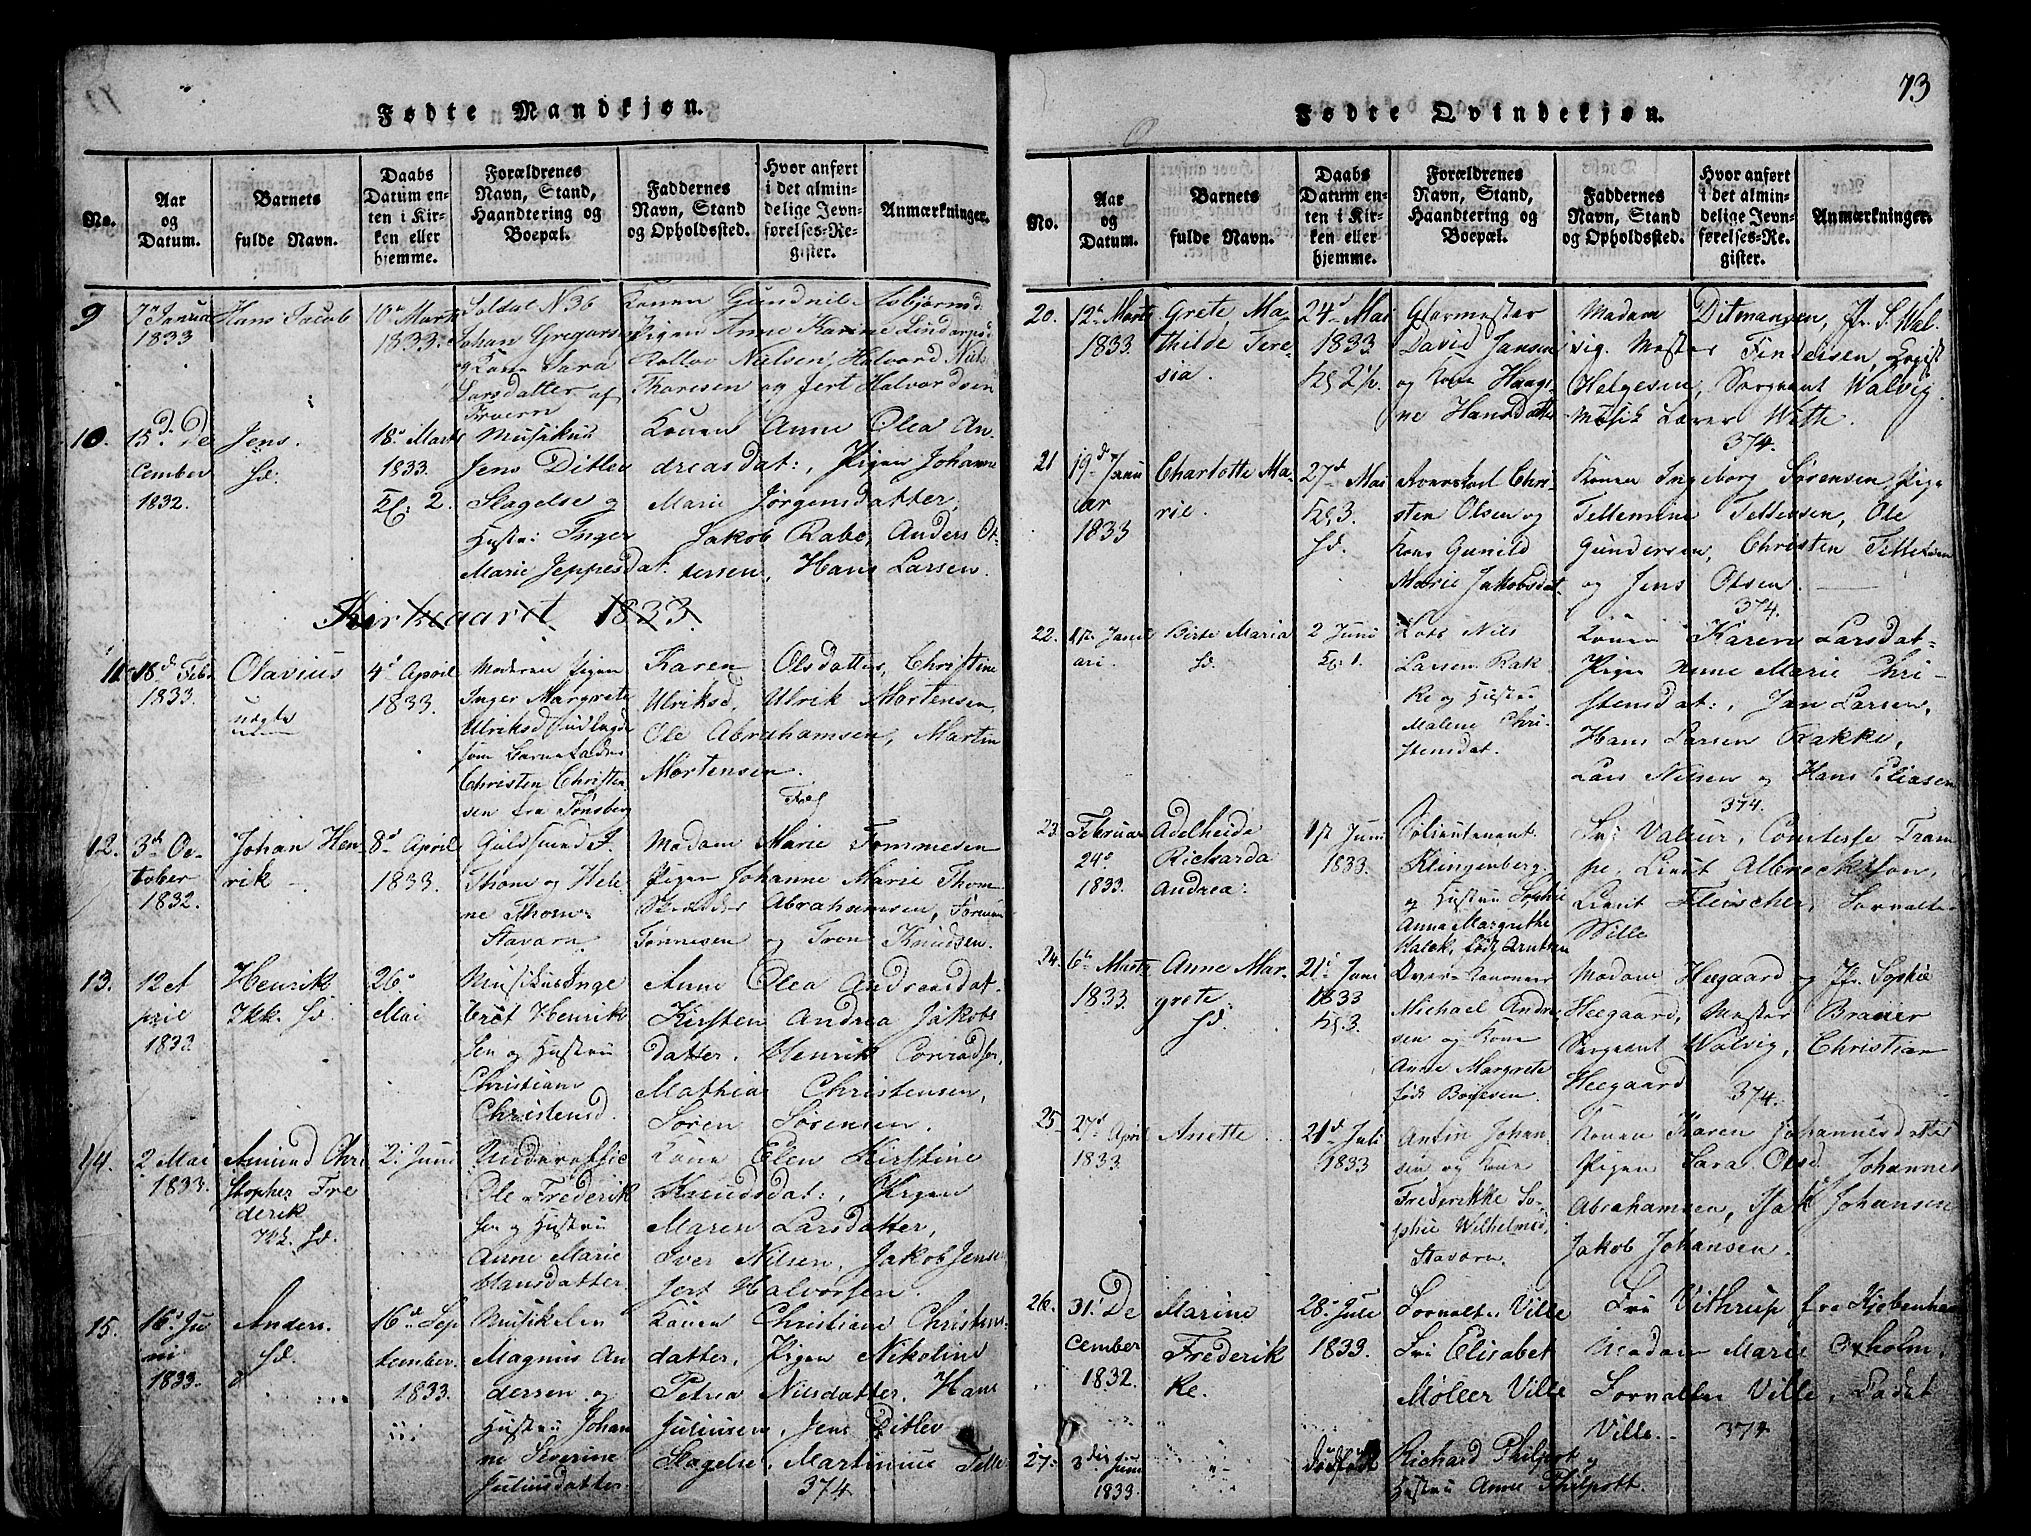 Fødte Mandkjøn.
No.
Aar
og
Datum.
Barnets
fulde Navn.
Daabs
Datum en-
ten i Kir-
ken eller
hjemme.
Forældrenes
Navn, Stand,
Haandtering og
Boepæl.
Faddernes
Navn, Stand
og Opholdssted.
Hvor anført
i det almin-
delige Jevn-
førelses-Re-
gister.
Anmærkninger.
9
1833
Hans Jacob
1833.
Soldat N 36
Johan Gregersen
og Kone Sara
Larsdatter af
Konen Gundnil
Pigen Anne Karine
Nielsen, Halvord
Thoresen og Jert Halvordsen
10.
15d. De
cember
1832.
Jens.
18d Marts
1833.
Kl: 2.
Musikus
Jens Ditlev
Slagelse og
Hustru Inger
Marie Jeppesdat.
Konen Anne Olea An-
dreasdat:, Pigen Johanne
Marie Jørgensdatter,
Jakob Rabe, Anders Ot-
tersen, Hans Larsen.
Kirkeaaret 1833.
11.
18d Feb.
1833.
Olavius
uægte
4d April
1833.
Moderen Pigen
Inger Margrete
Ulriksd udlagde
som Barnefader
Christen Christen
sen fra Tønsberg
Karen Olsdatter, Christine
Ulriksd, Ulrik Mortensen,
Ole Abrahamsen, Martin
Mortensen.
12.
3d Oc-
tober
1832.
Johan Hen-
rik
8d April
1833.
Guldsmed J.
Thome og Hele-
ne Thom
Stavern.
Madam Marie Tommesen
Pigen Johanne Marie Thom
Abrahamsen,
Tønnesen og Tron Knudsen.
13.
12 A
pril
1833
Henrik
26d
Mai
Musikus Inge
bret Henrik
sen og Hustru
Christiane
Christensd.
Anne Olea Andreasdat.
Kirsten Andrea Jakobs
datter, Henrik Conradsen,
Mathias Christensen,
Søren Sørensen.
14.
2 Mai
1833.
Amund Chri
stopher Fre
derik
2d Juni
Underofficer
Ole Frederik
sen og Hustru
Anne Marie
Hansdatter
Kone Elen Kirstine
Knudsdat:, Pigen
Maren Larsdatter,
Iver Nilsen, Jakob Jens
Jert Halvorsen.
15.
16d Ju
ni
1833.
Anders
16d Sep
tember.
1833.
Magnus An
dersen og
Hustru Johan
ne Severine
Juliusdatter
Konen Christiane Christens-
datter, Pigen Nikoline
Petrea Nilsdatter, Hans
Juliussen, Jens Ditlev
Slagelse, Martinius
374.
73
Fødte Qvindekjøn.
No.
Aar
og
Datum.
Barnets
fulde Navn.
Daabs
Datum en-
ten i Kir-
ken eller
hjemme.
Forældrenes
Navn, Stand,
Haandtering og
Boepæl.
Faddernes
Navn, Stand
og Opholdssted.
Hvor anført
i det almin-
delige Jevn-
førelses-Re-
gister.
Anmærkninger.
20.
12d Marts
1833.
Grete Ma-
thilde Tere-
sia.
24d Mai
1833
Glarmester
David Jansen
og Kone
Hansdatter
Madam Ditmansen, Jfr S. Wal-
vig. Mester Findersen
Helgesen, Sergeant Walvig,
Musik Lærer Witte.
374.
21
19d Janu
ar
1833
Charlotte Ma-
rie.
27d Mai
Kl 3.
Chri-
sten Olsen og
Kone Gunild
Marie Jakobsdat.
Konen Ingeborg Sørensen, Pige
Tellemine Tellefsen, Ole
Gundersen, Christen Tellefsen
og Jens Olsen.
374.
22.
Janu
ari.
Birte Maria
2 Juni
Kl. 1.
Lods Nils
Larsen Rak
ke og Hustru
Malene Chri
stensdat.
Konen Karen Larsdat-
Pigen Anne Marie Chri-
stensdat:, Jan Larsen,
Hans Larsen Rakke,
Lars Nilsen og Hans Eliasen
374.
23.
Februar
24d
1833.
Adelheide
Richarda
Andrea:
Juni
1833.
Klingenberg
og Hustru Sophie
Anna Margrethe
Fru Valeur, Comtesse Tram
pe, Lieut Albrecktson,
Lieut Fleischer, Forvalter
Wille
24.
6d Marts
1833.
Anne Mar-
grete
21d Juni
1833
Kl 3.
Over-Canoneer
Michael Andre
sen og Kone
Anne Margrete
født Boysen.
Madam Heegaard og Jfr. Sophie
Heegaard, Mester Brauer
Sergeant Walvig, Christian
Heegaard
374.
25.
27d April
1833.
Anette
21d Juli
1833
Anton Johan
sen og Kone
Frederikke So-
phie Wilhelmsd,
Stavern.
Konen Karen Johannesdatter
Pigen Sara Olsd, Johannes
Abrahamsen, Isak Johansen
Jakob Johansen.
26.
31d De
cember
1832.
Marine
Frederik
ke.
28d Juli
1833.
Forvalt. Ville
Fru Elisabet
Møller Ville
Fru Vithrup fra Kjøbenhavn
Madam Marie Oxholm,
Forvalter Ville, Cadet
Ville.
374
27.
3die Juni
1833.
dødfødt
Richard Philpot og
Hustru Anne Philpott.